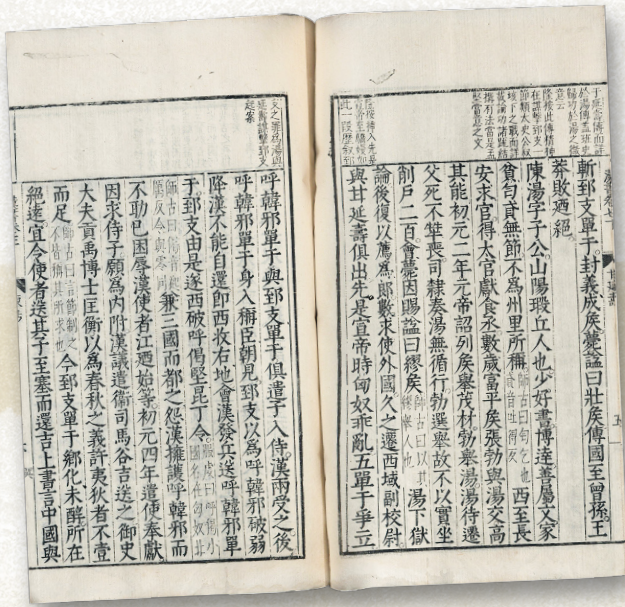 斬郅支單于封義成矦薨謚曰壯矦傳國至曾孫王
莽敗廼絕
陳湯字子公山陽瑕丘人也少好書博達善屬文家
貧匄貣無節不為州里所稱師古曰匄乞也貣音吐得反西至長
安求官得太官獻食丞數歲富平矦張勃與湯交高
其能初元二年元帝詔列矦舉茂材勃舉湯湯待遷
父死不奔喪司隸奏湯無循行勃選舉故不以實坐
削戶二百會薨因賜謚曰繆矦師古曰以其繆舉人也湯下獄
論後復以薦為郎數求使外國久之遷西域副校尉
與甘延壽俱出先是宣帝時匈奴乖亂五單于爭立
呼韓邪單于與郅支單于俱遣子入侍漢兩受之後
呼韓邪單于身入稱臣朝見郅支以為呼韓邪破弱
降漢不能自還即西收右地會漢發兵送呼韓邪單
于郅支由是遂西破呼偈堅昆丁令兼三國而都之怨漢擁護呼韓邪而
不助己困辱漢使者江廼始等初元四年遣使奉獻
因求侍子願為內附漢議遣衞司馬谷吉送之御史
大夫貢禹博士匡衡以為春秋之義許夷狄者不壹
而足師古曰言節制之不皆稱其所求也今郅支單于鄉化未醇所在
絕遠宜令使者送其子至塞而還吉上書言中國與